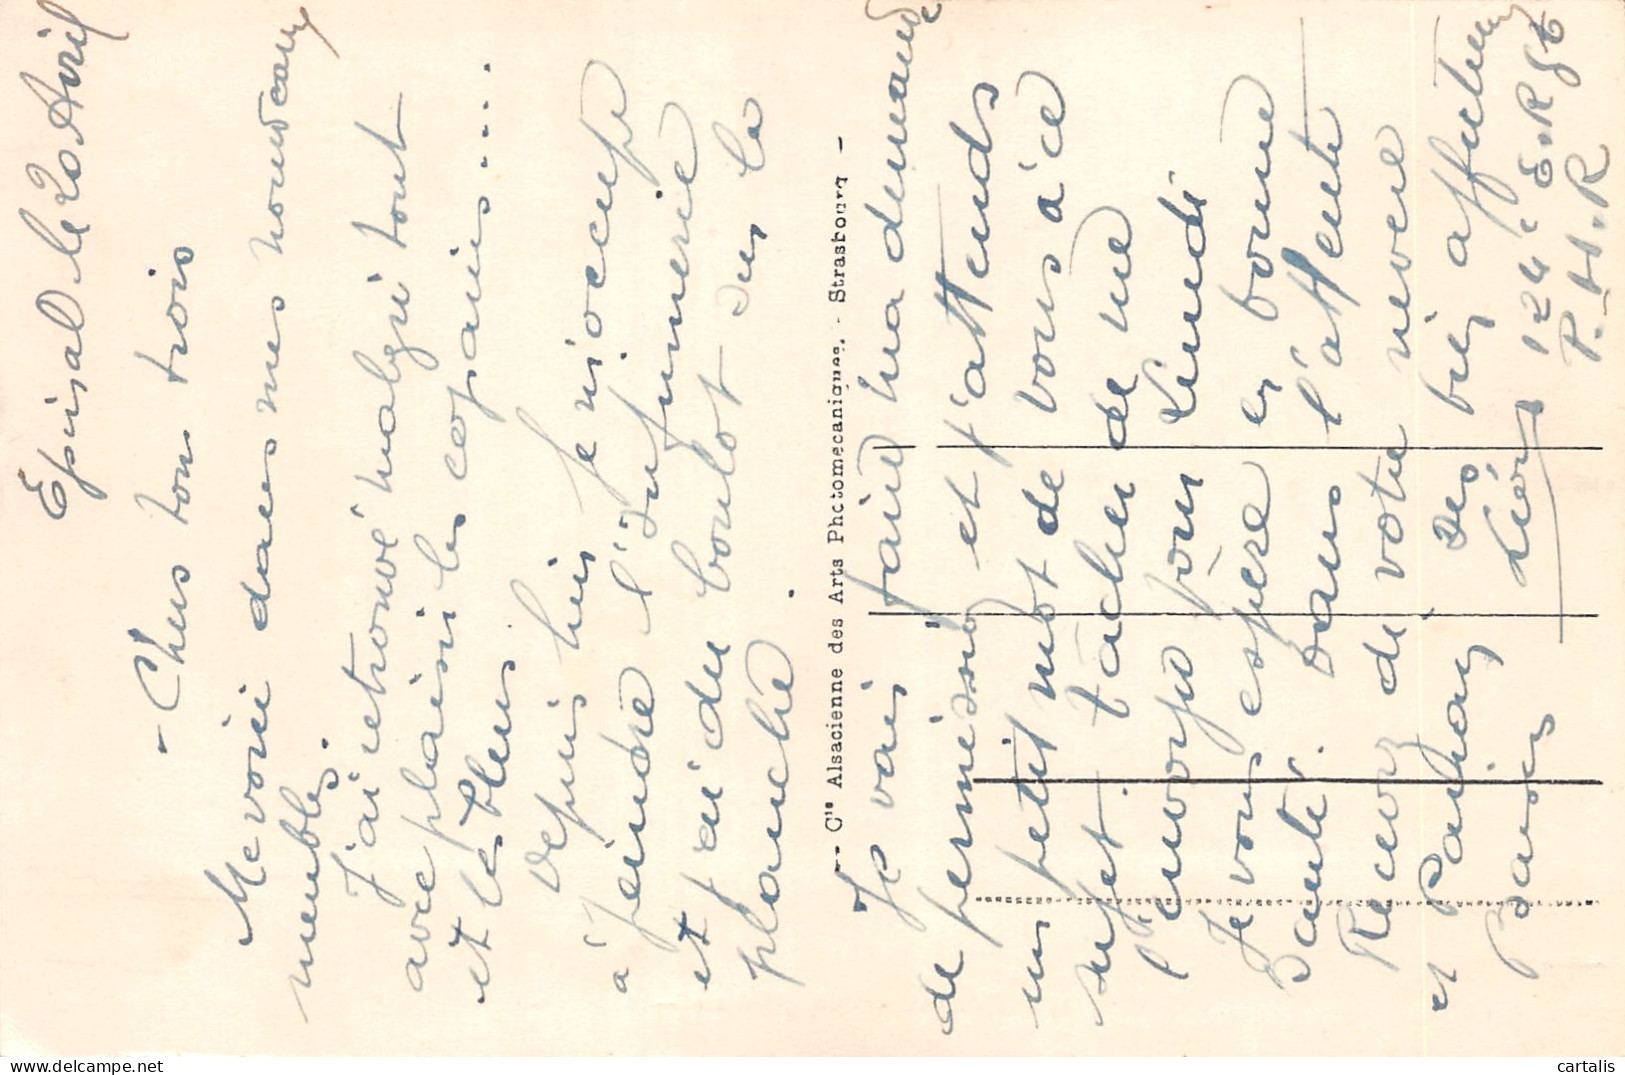 Epinal le 20 Avril
- Chers tous trois
Me voici dans mes nouveaux
meubles.
J'ai retrouvé malgré tout
avec plaisir les copains.....
et les bleus
Depuis hier je m'occupe
à joindre l'infirmerie
et j'ai du boulot sur la
planche.
-- Cie Alsacienne des Arts Photomecaniques. - Strasbourg -
Je vais faire ma demande
de permission et j'attends
un petit mot de vous à ce
sujet. tâcher de me
l'envoyé pour Lundi
Je vous espère en bonne
Santé. Dans l'attente
Recevez de votre neveu
et Parrain ses bien affectueux
Baisers
124e E.Rgt
P.H.R